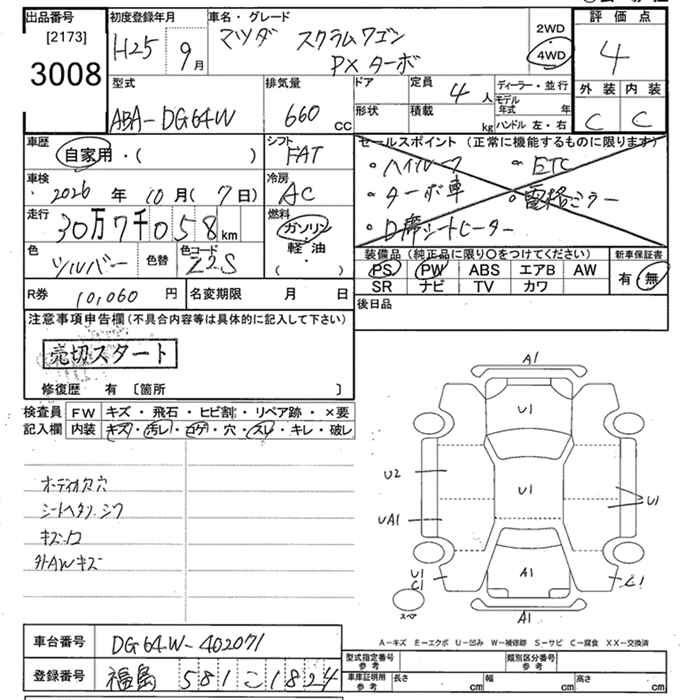 出品番号
[2173]
3008
初度登録年月
H25 9月
車名・グレード
マツダ スクラムワゴン
PXターボ
2WD
4WD
評価点
4
外装 内装
C C
型式
ABA-DG64W
排気量
660 cc
ドア
形状
定員 4人
積載 kg
ディーラー・並行
モデル年式 年
ハンドル 左・右
車歴
自家用・( )
シフト
FAT
セールスポイント (正常に機能するものに限ります)
・ハイルーフ ・ETC
・ターボ車 ・電格ミラー
・D席シートヒーター
車検
2026年10月(7日)
冷房
AC
走行
30万7千058km
燃料
ガソリン
軽油
( ・ )
色
シルバー
色替
色コード
Z2S
装備品 (純正品に限り〇をつけてください)
PS PW ABS エアB AW
SR ナビ TV カワ
新車保証書
有 無
R券 10,060円
名変期限 月 日
後日品
注意事項申告欄 (不具合内容等は具体的に記入して下さい)
売切スタート
修復歴 有 〔箇所 〕
検査員 FW キズ・飛石・ヒビ割・リペア跡・×要
記入欄 内装 キズ・汚レ・コゲ・穴・スレ・キレ・破レ
オーディオ欠穴
シートヘタリ.シワ
外AWキズ
A1
U1
U2
U1
U1
UA1
U1
C1
A1
C1
スペア
A1
A-キズ E-エクボ U-凹み W-補修跡 S-サビ C-腐食 XX-交換済
車台番号 DG64W-402071
登録番号 福島 581 こ 1824
型式指定番号 参考
類別区分番号 参考
車庫証明用 参考
長さ cm 幅 cm 高さ cm